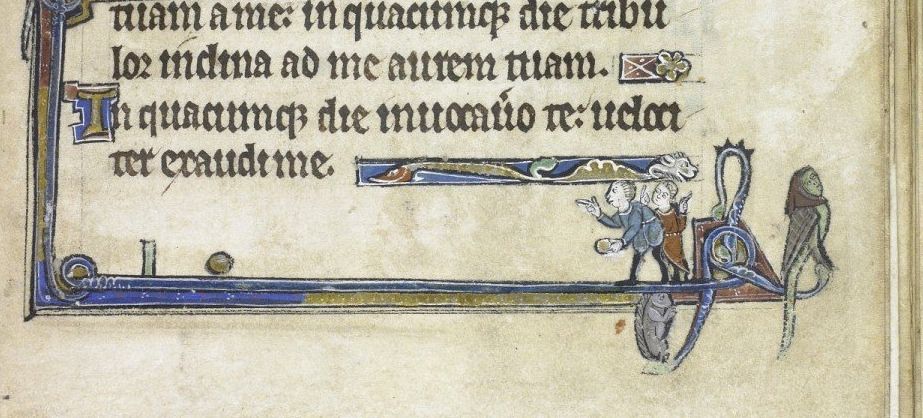 tuam a me: in quacumqꝫ die tribu
lor inclina ad me aurem tuam.
In quacumqꝫ die inuocaūo te: ueloci
ter exaudi me.